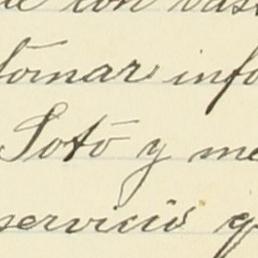 con
tomar info
Soto y me
servicio q